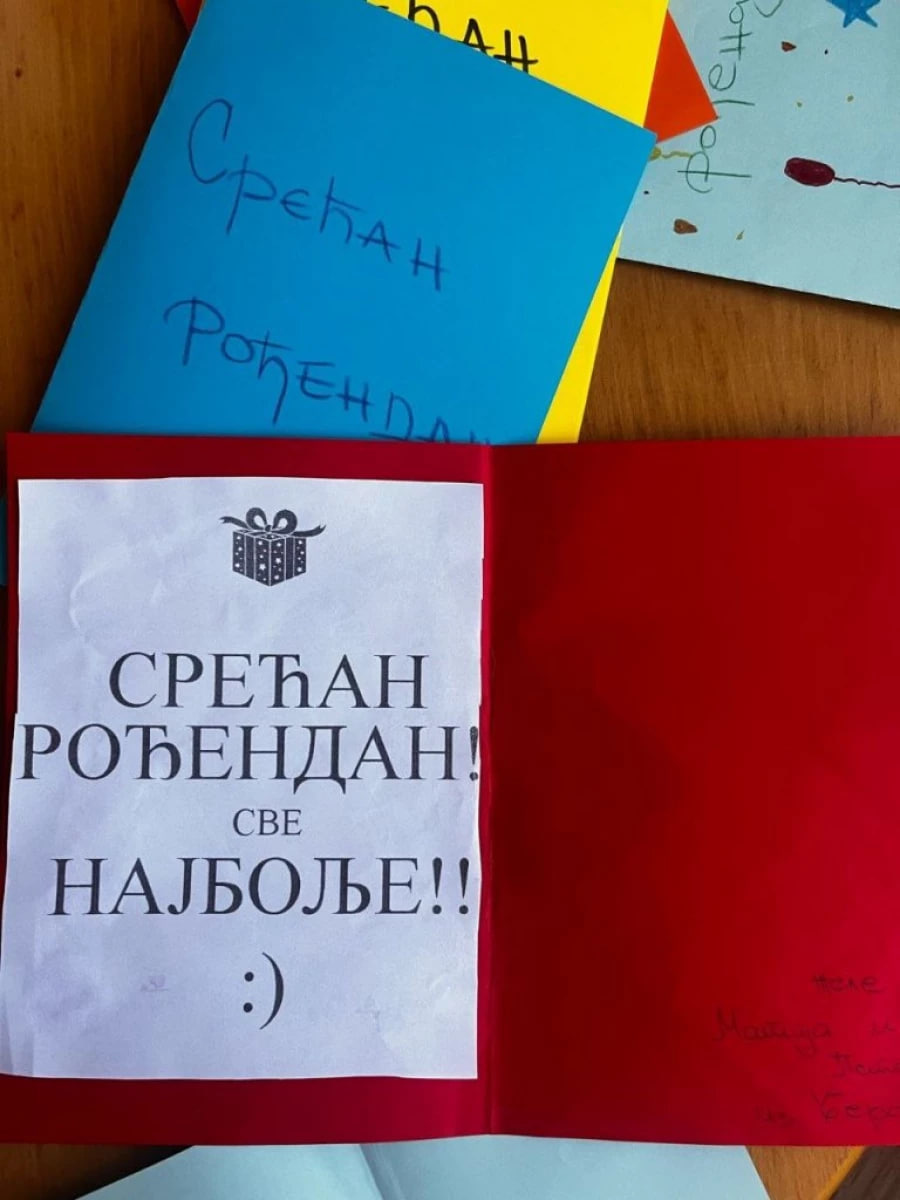 Срећан
Рођендан
СРЕЋАН
РОЂЕНДАН!
СВЕ
НАЈБОЉЕ!!
:)
Матија и
из